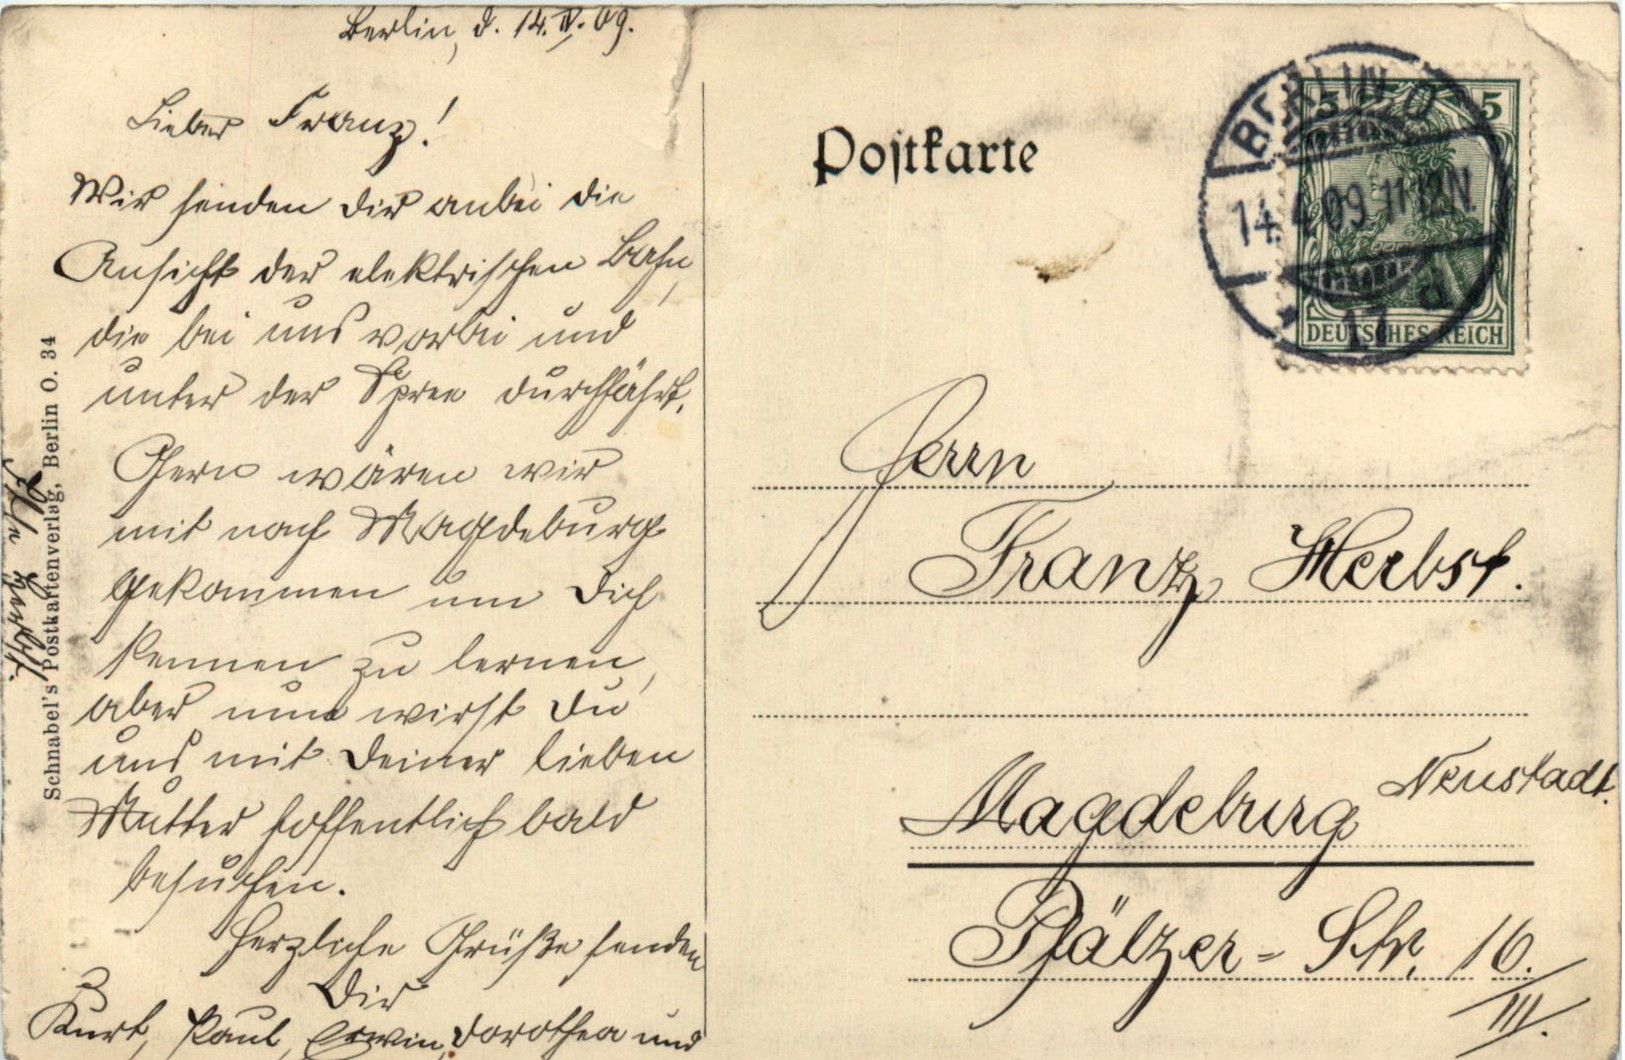 Berlin, d. 14. IV. 09.
Lieber Franz!
Wir senden Dir anbei die
Ansicht der elektrischen Bahn,
die bei uns vorbei und
unter der Spree durchfährt.
Gern wären wir
mit nach Magdeburg
gekommen um Dich
kennen zu lernen,
aber nun wirst Du
uns mit Deiner lieben
Mutter hoffentlich bald
besuchen.
Herzliche Grüße senden
Dir
Kurt, Paul, Erwin, Dorothea und
Herbst.
Schnabel's Postkartenverlag, Berlin O. 34
Postkarte
BERLIN O
14.4.09.11-12N.
17 d
5 5
DEUTSCHES REICH
Herrn
Franz Herbst.
Magdeburg Neustadt.
Pfälzer-Str. 16.
III.